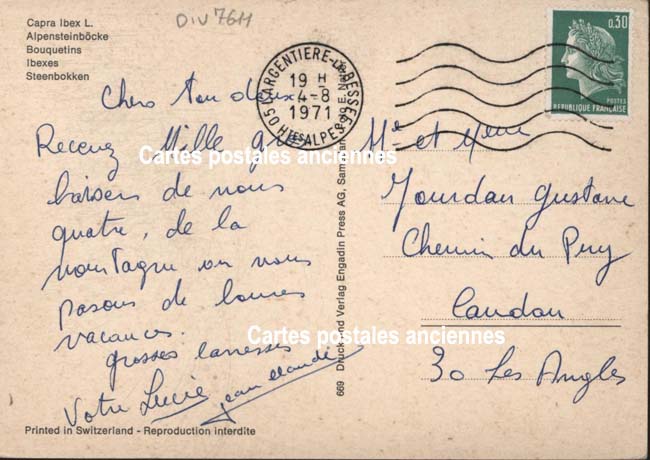 DIV 7611
Capra Ibex L.
Alpensteinböcke
Bouquetins
Ibexes
Steenbokken
05 L'ARGENTIERE-LA-BESSEE
19 H
4-8
1971
HTES ALPES
0,30
POSTES
REPUBLIQUE FRANÇAISE
Chers tous deux
Recevez Mille gros
baisers de nous
quatre, de la
montagne ou nous
passons de bonnes
vacances.
grosses caresses
Votre Lucie
jean claude
Mr et Mme
Jourdan Gustave
Chemin du Puy
Candau
30 Les Angles
Cartes postales anciennes
Cartes postales anciennes
669 Druck und Verlag Engadin Press AG, Samedan
Printed in Switzerland - Reproduction interdite